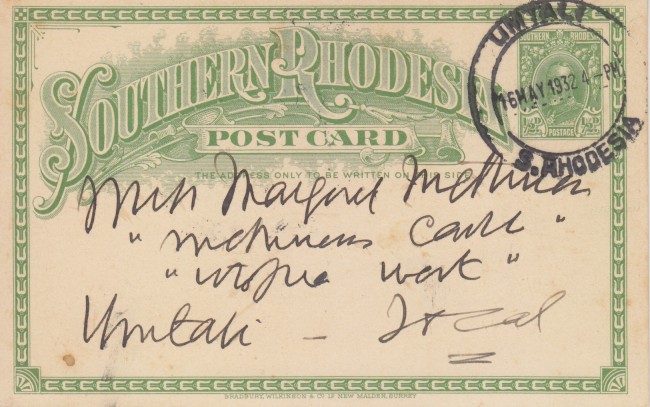 SOUTHERN RHODESIA
POST CARD
THE ADDRESS ONLY TO BE WRITTEN ON THIS SIDE
SOUTHERN RHODESIA
½D ½D
POSTAGE
UMTALI
16 MAY 1932 4-PM
S. RHODESIA
Miss Margaret
Umtali -
BRADBURY, WILKINSON & Co LD NEW MALDEN, SURREY